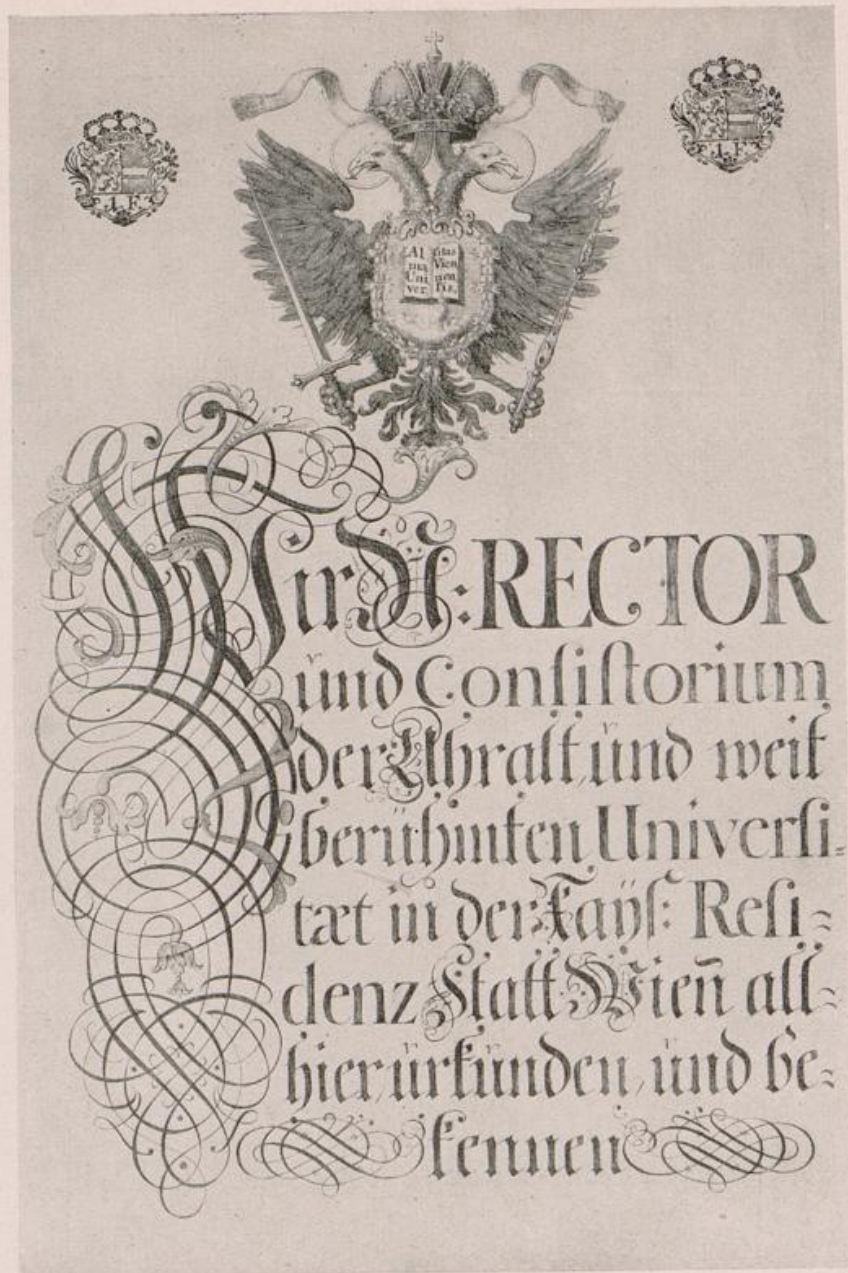 1. F.
1. F.
Al
ma
Uni
ver
sitas
Vien
nen
sis.
Wir N: RECTOR
und Consistorium
der Uhralt, und weit
berühmten Universi=
tæt in der Kaÿs: Resi=
denz Statt Wien̄ all=
hier, urkunden, und be=
kennen